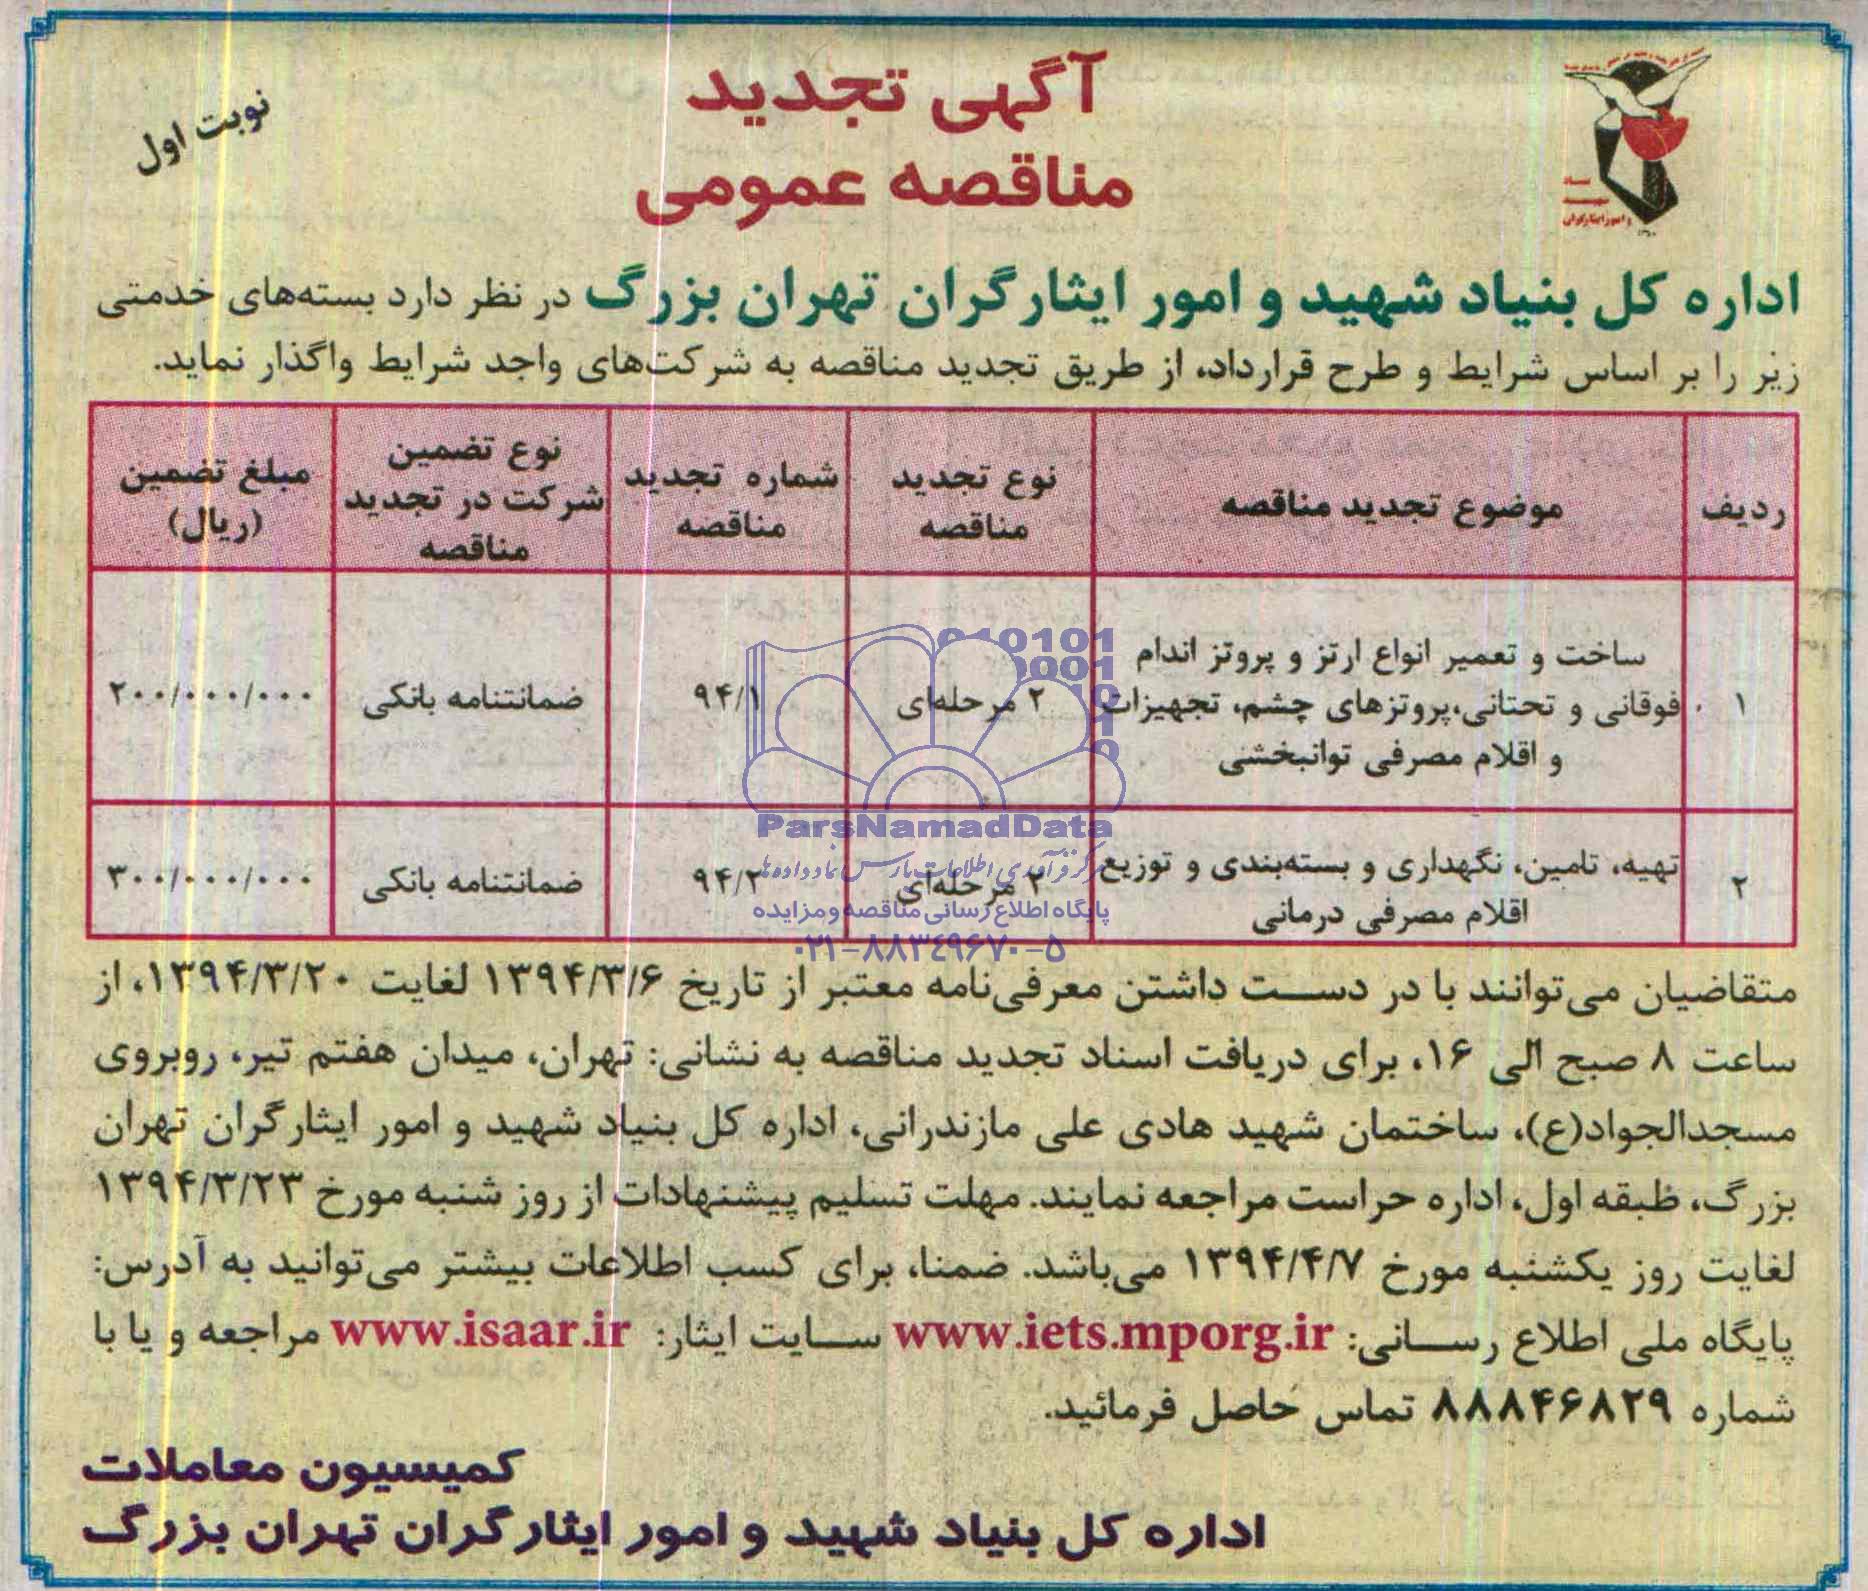 نوبت اول
آگهی تجدید
مناقصه عمومی
بنیاد
شهید
و امور ایثارگران
اداره کل بنیاد شهید و امور ایثارگران تهران بزرگ در نظر دارد بسته‌های خدمتی
زیر را بر اساس شرایط و طرح قرارداد، از طریق تجدید مناقصه به شرکت‌های واجد شرایط واگذار نماید.
ردیف
موضوع تجدید مناقصه
نوع تجدید
مناقصه
شماره تجدید
مناقصه
نوع تضمین
شرکت در تجدید
مناقصه
مبلغ تضمین
(ریال)
۱
ساخت و تعمیر انواع ارتز و پروتز اندام
فوقانی و تحتانی،پروتزهای چشم، تجهیزات
و اقلام مصرفی توانبخشی
۲ مرحله‌ای
۹۴/۱
ضمانتنامه بانکی
۲۰۰/۰۰۰/۰۰۰
۲
تهیه، تامین، نگهداری و بسته‌بندی و توزیع
اقلام مصرفی درمانی
۲ مرحله‌ای
۹۴/۲
ضمانتنامه بانکی
۳۰۰/۰۰۰/۰۰۰
ParsNamadData
مرکز فرآوری اطلاعات پارس نماد داده‌ها
پایگاه اطلاع رسانی مناقصه و مزایده
۰۲۱-۸۸۳۴۹۶۷۰-۵
متقاضیان می‌توانند با در دست داشتن معرفی‌نامه معتبر از تاریخ ۱۳۹۴/۳/۶ لغایت ۱۳۹۴/۳/۲۰، از
ساعت ۸ صبح الی ۱۶، برای دریافت اسناد تجدید مناقصه به نشانی: تهران، میدان هفتم تیر، روبروی
مسجدالجواد(ع)، ساختمان شهید هادی علی مازندرانی، اداره کل بنیاد شهید و امور ایثارگران تهران
بزرگ، طبقه اول، اداره حراست مراجعه نمایند. مهلت تسلیم پیشنهادات از روز شنبه مورخ ۱۳۹۴/۳/۲۳
لغایت روز یکشنبه مورخ ۱۳۹۴/۴/۷ می‌باشد. ضمنا، برای کسب اطلاعات بیشتر می‌توانید به آدرس:
پایگاه ملی اطلاع رسانی: www.iets.mporg.ir سایت ایثار: www.isaar.ir مراجعه و یا با
شماره ۸۸۸۴۶۸۲۹ تماس حاصل فرمائید.
کمیسیون معاملات
اداره کل بنیاد شهید و امور ایثارگران تهران بزرگ